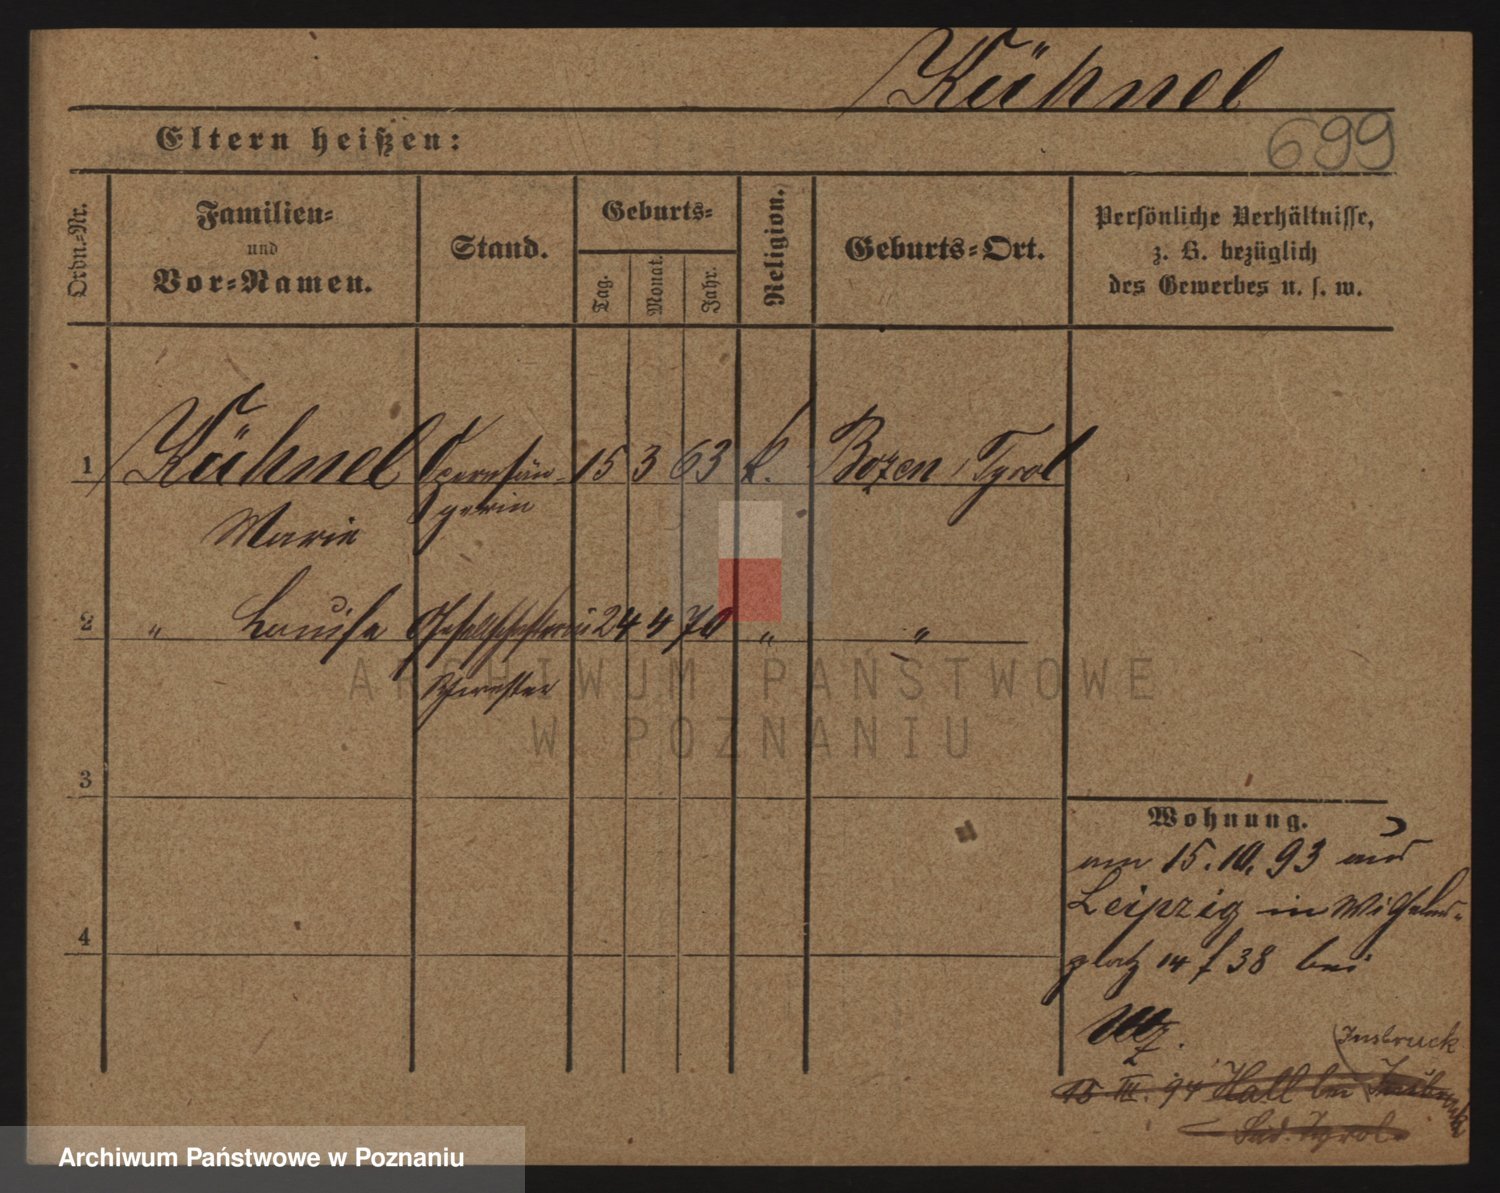 Kühnel
699
Eltern heißen:
Ordn.-Nr.
Familien-
und
Vor-Namen.
Stand.
Geburts-
Tag.
Monat.
Jahr.
Religion.
Geburts-Ort.
Persönliche Verhältnisse,
z. B. bezüglich
des Gewerbes u. s. w.
1 Kühnel Opernsän- 15 3 63 k. Bozen, Tyrol
Marie gerin
2 " Louise Gesellschafterin 24 4 70 " "
Schwester
ARCHIWUM PAŃSTWOWE
W POZNANIU
3
4
Wohnung.
am 15.10.93 aus
Leipzig in Wilhelms-
platz 14 f 38 bei
Insbruck
15 III. 94 Hall bei
Süd. Tyrol
Archiwum Państwowe w Poznaniu